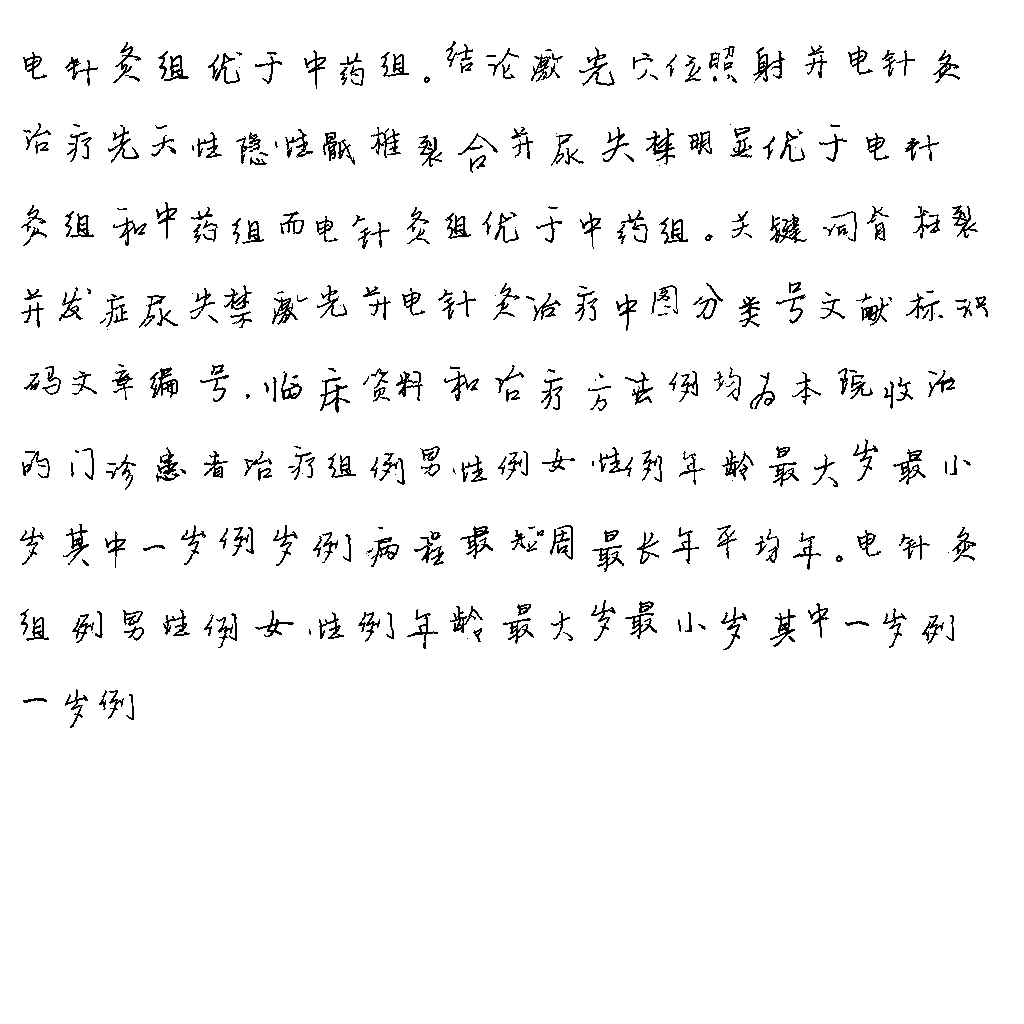 电针灸组优于中药组。结论激光穴位照射并电针灸
治疗先天性隐性骶椎裂合并尿失禁明显优于电针
灸组和中药组而电针灸组优于中药组。关键词脊柱裂
并发症尿失禁激光并电针灸治疗中图分类号文献标识
码文章编号.临床资料和治疗方法例均为本院收治
的门诊患者治疗组例男性例女性例年龄最大岁最小
岁其中一岁例岁例病程最短周最长年平均年。电针灸
组例男性例女性例年龄最大岁最小岁其中一岁例
一岁例